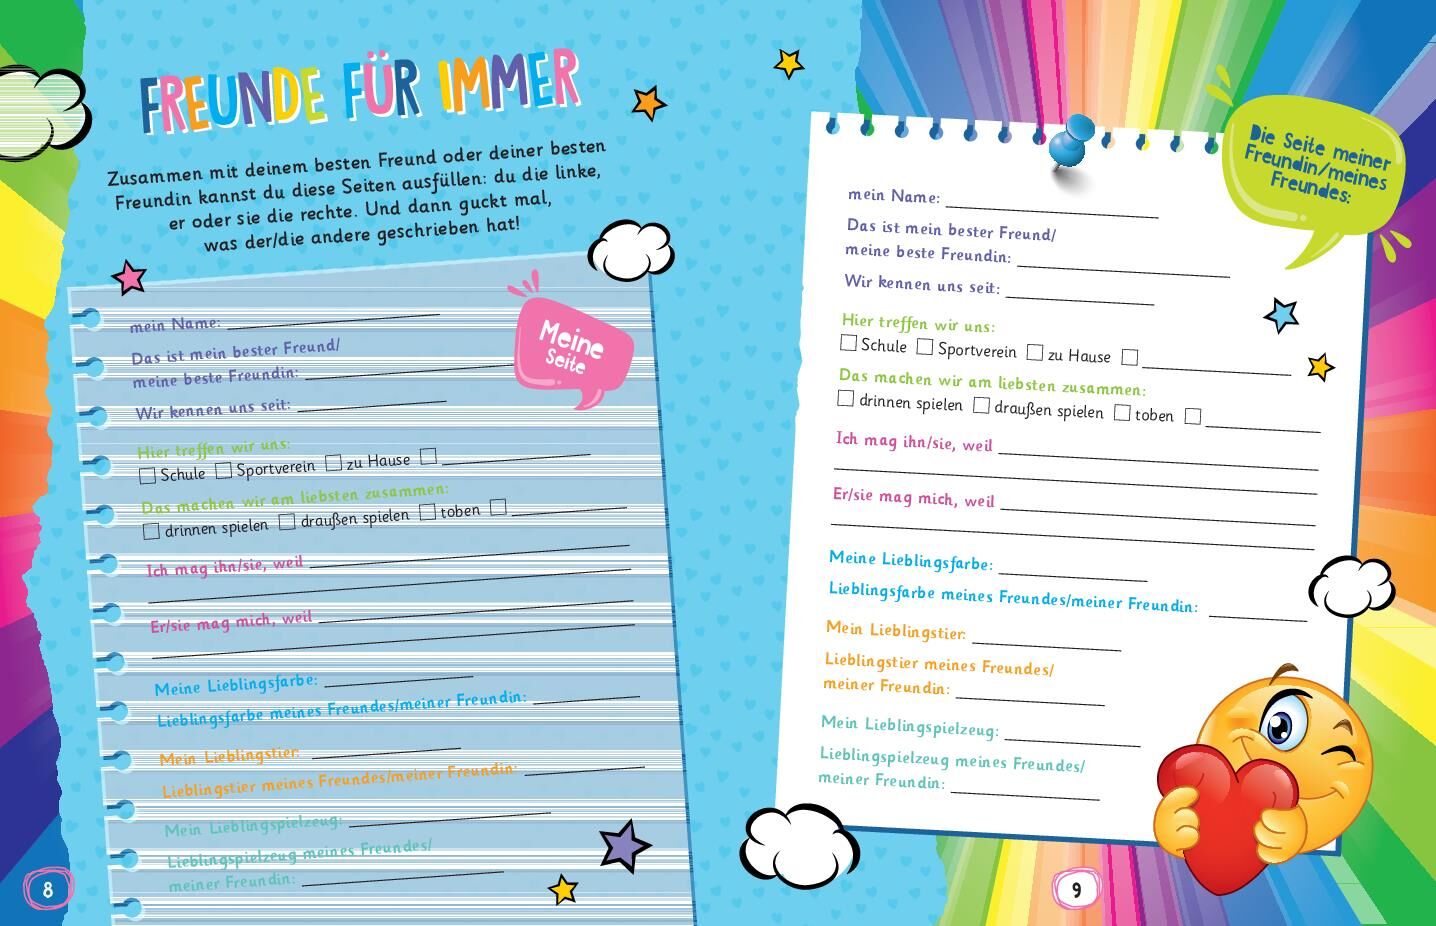 FREUNDE FÜR IMMER
Zusammen mit deinem besten Freund oder deiner besten
Freundin kannst du diese Seiten ausfüllen: du die linke,
er oder sie die rechte. Und dann guckt mal,
was der/die andere geschrieben hat!
Meine
Seite
mein Name:
Das ist mein bester Freund/
meine beste Freundin:
Wir kennen uns seit:
Hier treffen wir uns:
Schule Sportverein zu Hause
Das machen wir am liebsten zusammen:
drinnen spielen draußen spielen toben
Ich mag ihn/sie, weil
Er/sie mag mich, weil
Meine Lieblingsfarbe:
Lieblingsfarbe meines Freundes/meiner Freundin:
Mein Lieblingstier:
Lieblingstier meines Freundes/meiner Freundin:
Mein Lieblingspielzeug:
Lieblingspielzeug meines Freundes/
meiner Freundin:
8
Die Seite meiner
Freundin/meines
Freundes:
mein Name:
Das ist mein bester Freund/
meine beste Freundin:
Wir kennen uns seit:
Hier treffen wir uns:
Schule Sportverein zu Hause
Das machen wir am liebsten zusammen:
drinnen spielen draußen spielen toben
Ich mag ihn/sie, weil
Er/sie mag mich, weil
Meine Lieblingsfarbe:
Lieblingsfarbe meines Freundes/meiner Freundin:
Mein Lieblingstier:
Lieblingstier meines Freundes/
meiner Freundin:
Mein Lieblingspielzeug:
Lieblingspielzeug meines Freundes/
meiner Freundin:
9